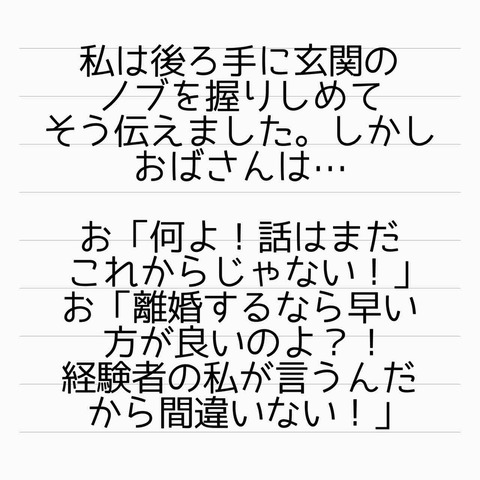 私は後ろ手に玄関の
ノブを握りしめて
そう伝えました。しかし
おばさんは…
お「何よ！話はまだ
これからじゃない！」
お「離婚するなら早い
方が良いのよ？！
経験者の私が言うんだ
から間違いない！」